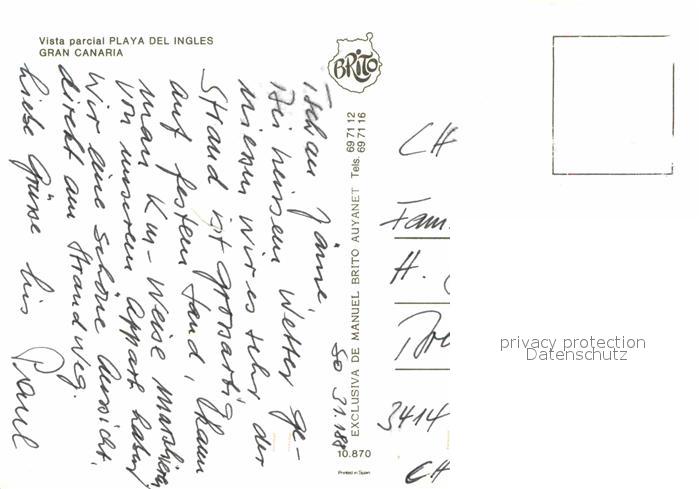 Vista parcial PLAYA DEL INGLES
GRAN CANARIA
BRITO
EXCLUSIVA DE MANUEL BRITO AUYANET Tels. 69 71 12
69 71 16
10.870
Printed in Spain
So 31.1.88
Tschau
Bei heissem Wetter ge-
niessen wir es sehr der
Strand ist grossartig
auf festem Sand, kann
man Km-Weise marschieren
Von unserem Appart. haben
Wir eine schöne Aussicht.
direkt am Strand Weg.
Liebe Grüsse bis
Paul
CH
Fam.
H.
3414
CH
privacy protection
Datenschutz